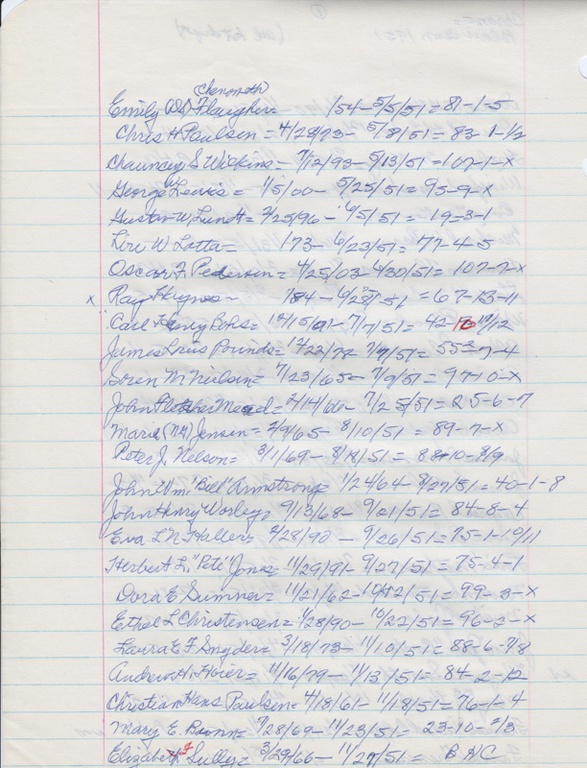 (Chenowith)
Emily Flaugher= /54-5/5/51=81-1-5
Chris H Paulsen=4/28/73-5/8/51=83-1-1/2
Chauncy S Wilkins=7/12/93-5/13/51=107-1-X
George W Lewis= 1/5/00-5/25/51=95-9-X
Gustav W Lundt=2/25/96-6/5/51=19-3-1
W Lotta= /73-6/23/51=77-4-5
Oscar F. Pedersen=4/25/03-6/30/51=107-7-X
x Ray Haynes- /84-6/28/51=67-13-11
Carl Henry Bohs= 7/7/51=42-10 11/12
James Louis Pounds= 12/22/77-7/9/51=55-7-4
Soren M Neilsen=7/23/65-7/9/51=97-10-X
John Fletcher Mead= 7/25/51=25-6-7
Jensen=2/9/65-8/10/51=89-7-X
Peter J. Nelson=3/1/69-8/18/51=88-10-8/9
John Wm. "Bill" Armstrong=1/24/64-8/27/51=40-1-8
John Henry Worley, 9/13/68-9/21/51=84-8-4
Eva L N Haller= 2/28/90-9/26/51=75-1-10/11
Herbert L. "Pete" Jones=11/29/91-9/27/51=75-4-1
Dora E Sumner=11/21/62-10/12/51=99-3-X
Ethel L Christensen=1/28/90-10/22/51=96-2-X
Laura E F Snyder=3/18/73-11/10/51=88-6-7/8
Andrew H. Hoier=11/16/79-11/13/51=84-2-12
Christian Hans Paulsen=4/18/61-11/18/51=76-1-4
Mary E. Brown=7/28/69-11/23/51=23-10-2/3
Elizabeth J Sully=3/29/66-11/27/51= B HC